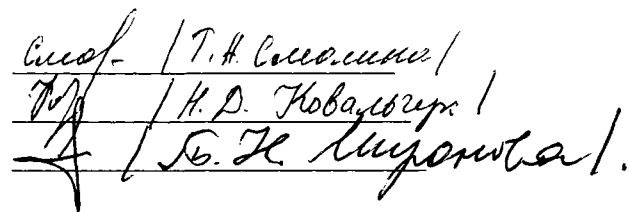 Смол- /Т.Н. Смолина/
/Н.Д. Ковальчук/
/Т.Н. Миронова/.